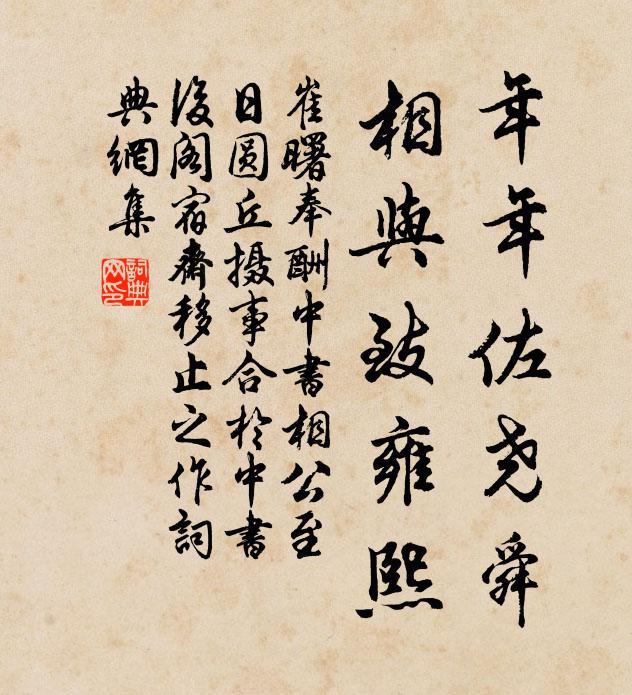 年年佐尧舜
相與致雍熙
崔曙奉酬中書相公至
日圆丘摄事合於中書
後阁宿齋移止之作詞
典網集
詞典網印